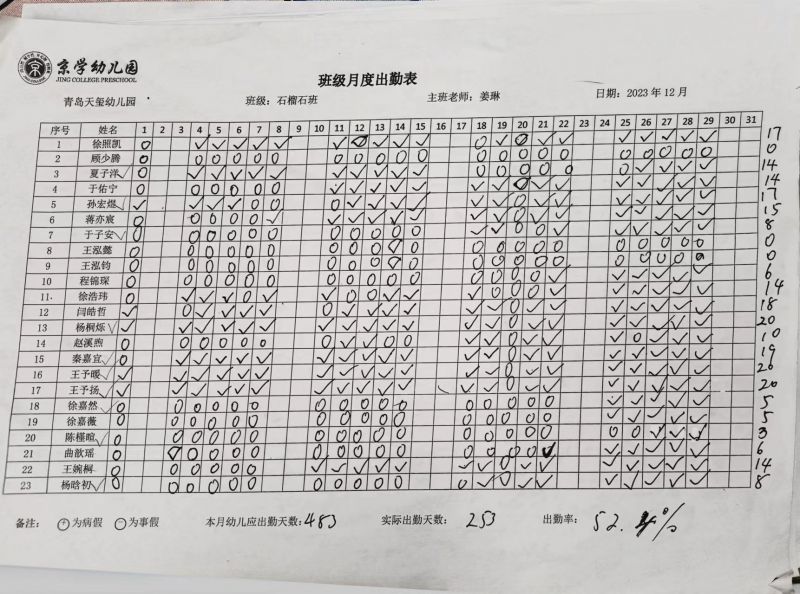 京学幼儿园
JING COLLEGE PRESCHOOL
班级月度出勤表
青岛天玺幼儿园 班级：石榴石班 主班老师：姜琳 日期：2023 年 12 月
序号 姓名 1 2 3 4 5 6 7 8 9 10 11 12 13 14 15 16 17 18 19 20 21 22 23 24 25 26 27 28 29 30 31
1 徐照凯 17
2 顾少腾 0
3 夏子洋 14
4 于佑宁 14
5 孙宏焜 17
6 蒋亦宸 15
7 于子安 8
8 王泓懿 0
9 王泓钧 0
10 程锦琛 6
11 徐浩玮 14
12 闫皓哲 18
13 杨桐烁 20
14 赵溪煦 10
15 秦嘉宜 19
16 王予暖 20
17 王予扬 20
18 徐嘉然 5
19 徐嘉薇 5
20 陈槿暄 3
21 曲歆瑶 6
22 王婉桐 14
23 杨晗初 8
备注： 为病假 为事假 本月幼儿应出勤天数：483 实际出勤天数： 253 出勤率： 52.4%